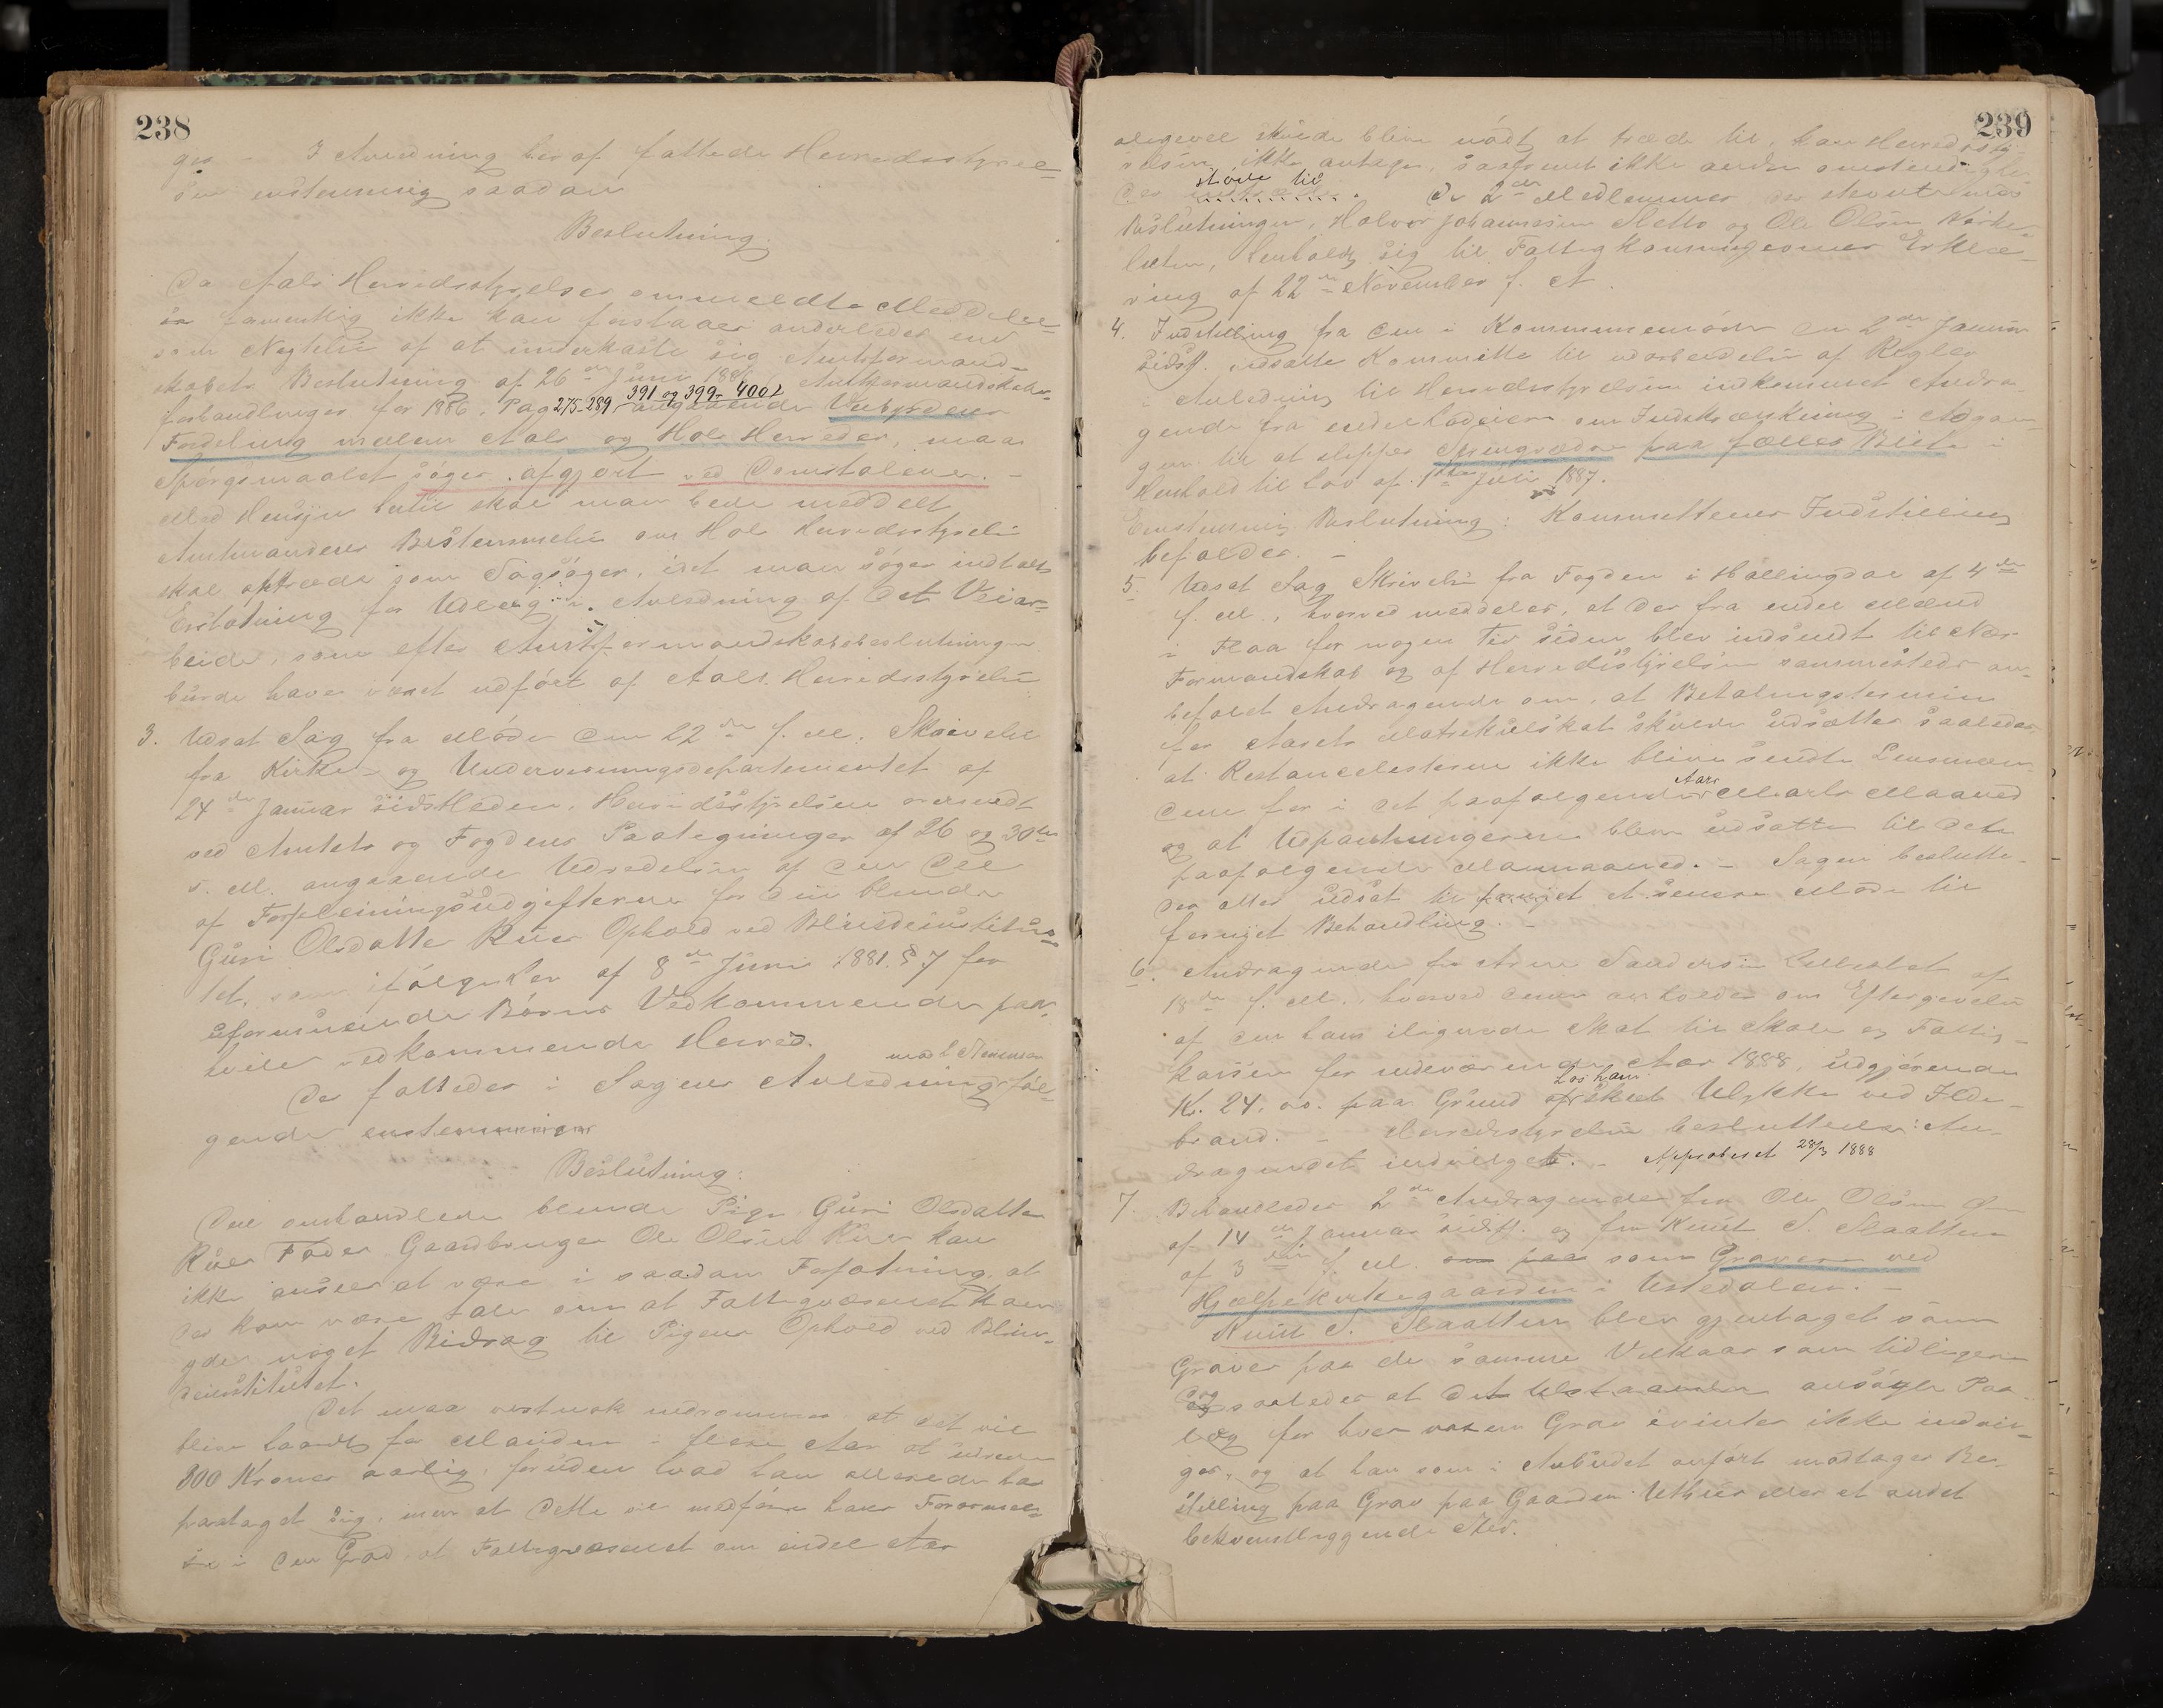 238
ges – I Anledning heraf fattede Herredsstyrel=
sen enstemmig saadan
Beslutning:
Da Aals Herredsstyrelses ommeldte Meddelel=
se formentlig ikke kan forstaaes anderledes end
som Negtelse af at underkaste sig Amtsformand=
skabets Beslutning af 26de Juni 1886, Amtsformandskabs=
391 og 399-400,
forhandlinger for 1886, Pag 275-289 angaaende Veibyrdens
Fordeling mellem Aals og Hols Herreder, maa
Spørgsmaalet søges afgjort ved Domstolene. –
Med Hensyn hertil skal man bede meddelt
Amtmandens Bestemmelse om Hols Herredsstyrelse
skal optræde som Sagsøger, idet man søger indtalt
Erstatning for Udlæg i Anledning af det Veiar=
beide, som efter Amtsformandskabsbeslutningen
burde have været udført af Aals Herredsstyrelse
3. Udsat Sag fra Møde den 22de f. M. Skrivelse
fra Kirke- og Undervisningsdepartementet af
24de Januar sidstleden, Herredsstyrelsen oversendt
ved Amtets og Fogdens Paategninger af 26 og 30te
s. M. angaaende Udredelsen af den Del
af Forpleiningsudgifterne for den blinde
Guri Olsdatter Rues Ophold ved Blindeinstitut=
tet, som ifølge Lov af 8de Juni 1881 § 7 for
uformuende Børns Vedkommende paa=
hviler vedkommende Herred.
mod 2 Stemmer
Der fattedes i Sagens Anledning føl=
gende enstemmige
Beslutning:
Den omhandlede blinde Pige Guri Olsdatter
Rues Fader Gaardbruger Ole Olsen Rue kan
ikke ansees at være i saadan Forfatning, at
der kan være tale om at Fattigvæsenet kan
yde noget Bidrag til Pigens Ophold ved Blin=
deinstitutet.
Det maa vistnok indrømmes at det vil
blive haardt for Manden i flere Aar at udrede
300 Kroner aarlig, foruden hvad han allerede har
paataget sig, men at dette vil medføre hans Forarmel=
se i den Grad, at Fattigvæsenet om endel Aar
239
aligevel skulde blive nødt at træde til, kan Herredssty=
relsen ikke antage, saafremt ikke andre omstændighe=
støde til
der indtræder. De 2de Medlemmer der stemte mod
Beslutningen, Halvor Johannesen Sletto og Ole Olsen Kirke=
luten, henholdt sig til Fattigkommissionens Erklæ=
ring af 22de November f. A.
4. Indstilling fra den i Kommunemøde den 2den Januar
sidstl. nedsatte Kommitte til udarbeidelse af Regler
i Anledning til Herredsstyrelsen indkommet Andra=
gende fra endel Lodeiere om Indskrænkning i Adgan=
gen til at slippe Springvædre paa fælles Beite i
Henhold til Lov af 1ste Juli 1887.
Enstemmig Beslutning: Kommitteens Indstilling
befoldes. –
5. Udsat Sag Skrivelse fra Fogden i Hallingdal af 4de
f. M., hvorved meddeles, at der fra endel Mænd
i Flaa for nogen Tid siden blev indsendt til Næs
Formandskab og af Herredsstyrelsen sammesteds an=
befalet Andragende om, at Betalingstermin
for Aarets Matrikulskat skulde udsættes saaledes,
at Restancelisterne ikke bleve sendte Lensmæn=
Aars
dene før i det paafølgende Marts Maaned
og at Udpantningerne blev udsatte til den
paafølgende Mai maaned. – Sagen beslutte=
des atter udsat til fornyet et senere Møde til
fornyet Behandling. –
6. Andragende fra Arne Sandersen af
18de f. M., hvorved denne anholder om Eftergivelse
af den ham ilignede Skat til Skole og Fattig=
kassen for indeværende Aar 1888, udgjørende
hos ham
Kr. 24,00. paa Grund af skeet Ulykke ved Ilde=
brand. – Herredsstyrelsen besluttede: An=
dragendet indvilget. – Approberet 28/3 1888
7. Behandledes 2de Andragender fra Ole Olsen
af 14de Januar sidstl. og fra Knut S. Slaatten
af 3die f. M. om paa som Gravere ved
Hjælpekirkegaarden i Ustedalen. –
Knut S. Slaatten blev gjentaget som
Graver paa de samme Vilkaar som tidligere
dog saaledes at det ansøgte Paa=
læg for hver voxen Grav ivinter ikke indvil=
ges, og at han som i Anbudet anført modtager Be=
stilling paa Grav paa Gaarden eller et andet
bekvemtliggende Sted.